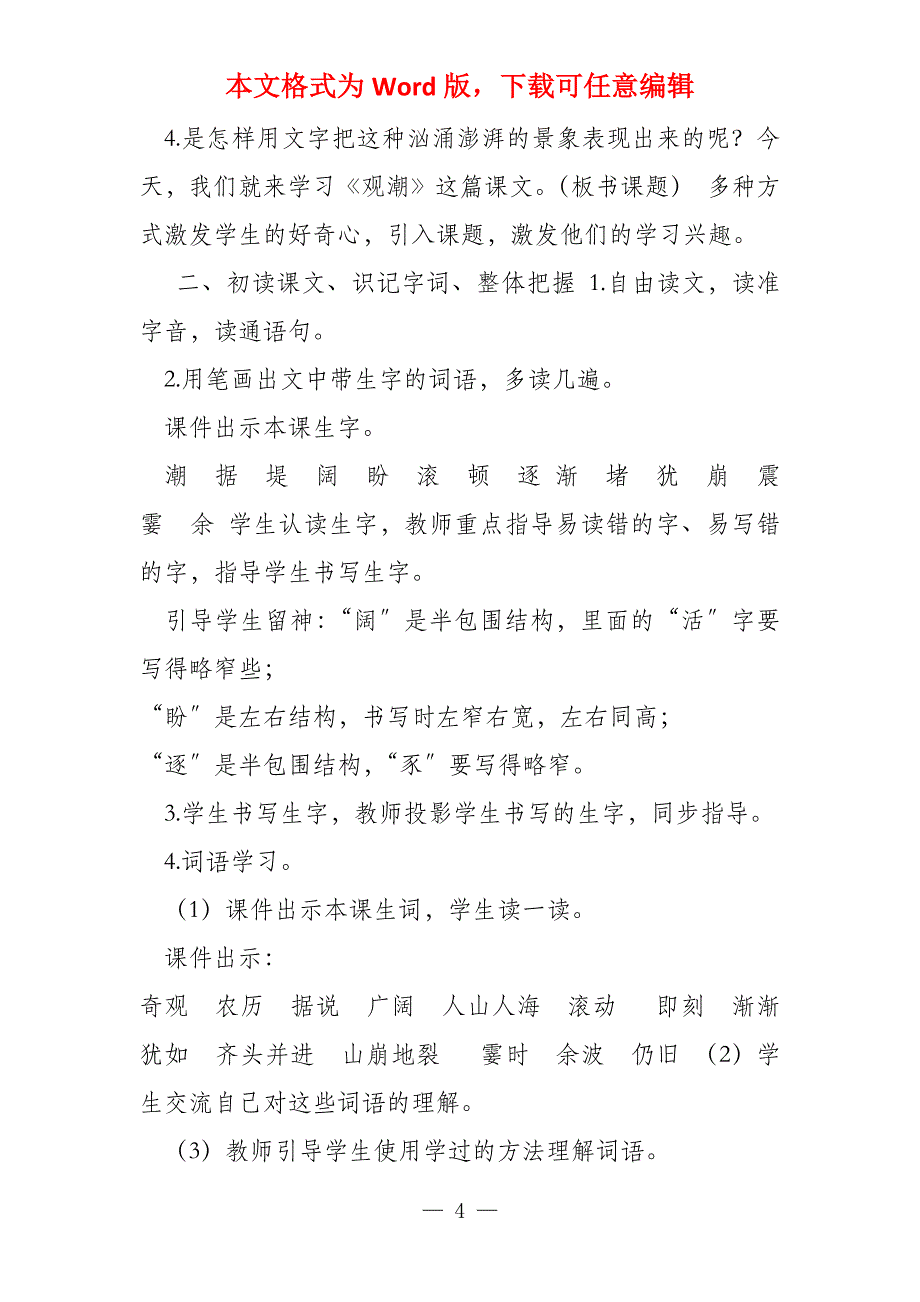 本文格式为 Word 版，下载可任意编辑
4.是怎样用文字把这种汹涌澎湃的景象表现出来的呢？今
天，我们就来学习《观潮》这篇课文。（板书课题） 多种方
式激发学生的好奇心，引入课题，激发他们的学习兴趣。
二、初读课文、识记字词、整体把握 1.自由读文，读准
字音，读通语句。
2.用笔画出文中带生字的词语，多读几遍。
课件出示本课生字。
潮 据 堤 阔 盼 滚 顿 逐 渐 堵 犹 崩 震
霎 余 学生认读生字，教师重点指导易读错的字、易写错
的字，指导学生书写生字。
引导学生留神：“阔″是半包围结构，里面的“活″字要
写得略窄些；
“盼″是左右结构，书写时左窄右宽，左右同高；
“逐″是半包围结构，“豕″要写得略窄。
3.学生书写生字，教师投影学生书写的生字，同步指导。
4.词语学习。
（1）课件出示本课生词，学生读一读。
课件出示：
奇观 农历 据说 广阔 人山人海 滚动 即刻 渐渐
犹如 齐头并进 山崩地裂 霎时 余波 仍旧 （2）学
生交流自己对这些词语的理解。
（3）教师引导学生使用学过的方法理解词语。
— 4 —